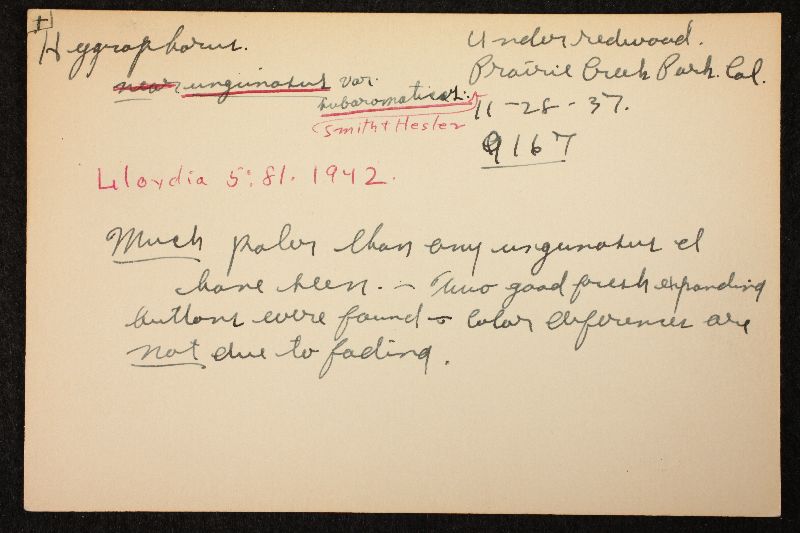 +
Hygrophorus.
near unguinosus var.
subaromaticus.
Smith + Hesler
Under redwood.
Prairie Creek Park. Cal.
11-28-37.
9167
Lloydia 5:81. 1942.
Much paler than any unguinosus I
have seen. – Two good fresh expanding
buttons were found – Color differences are
not due to fading.